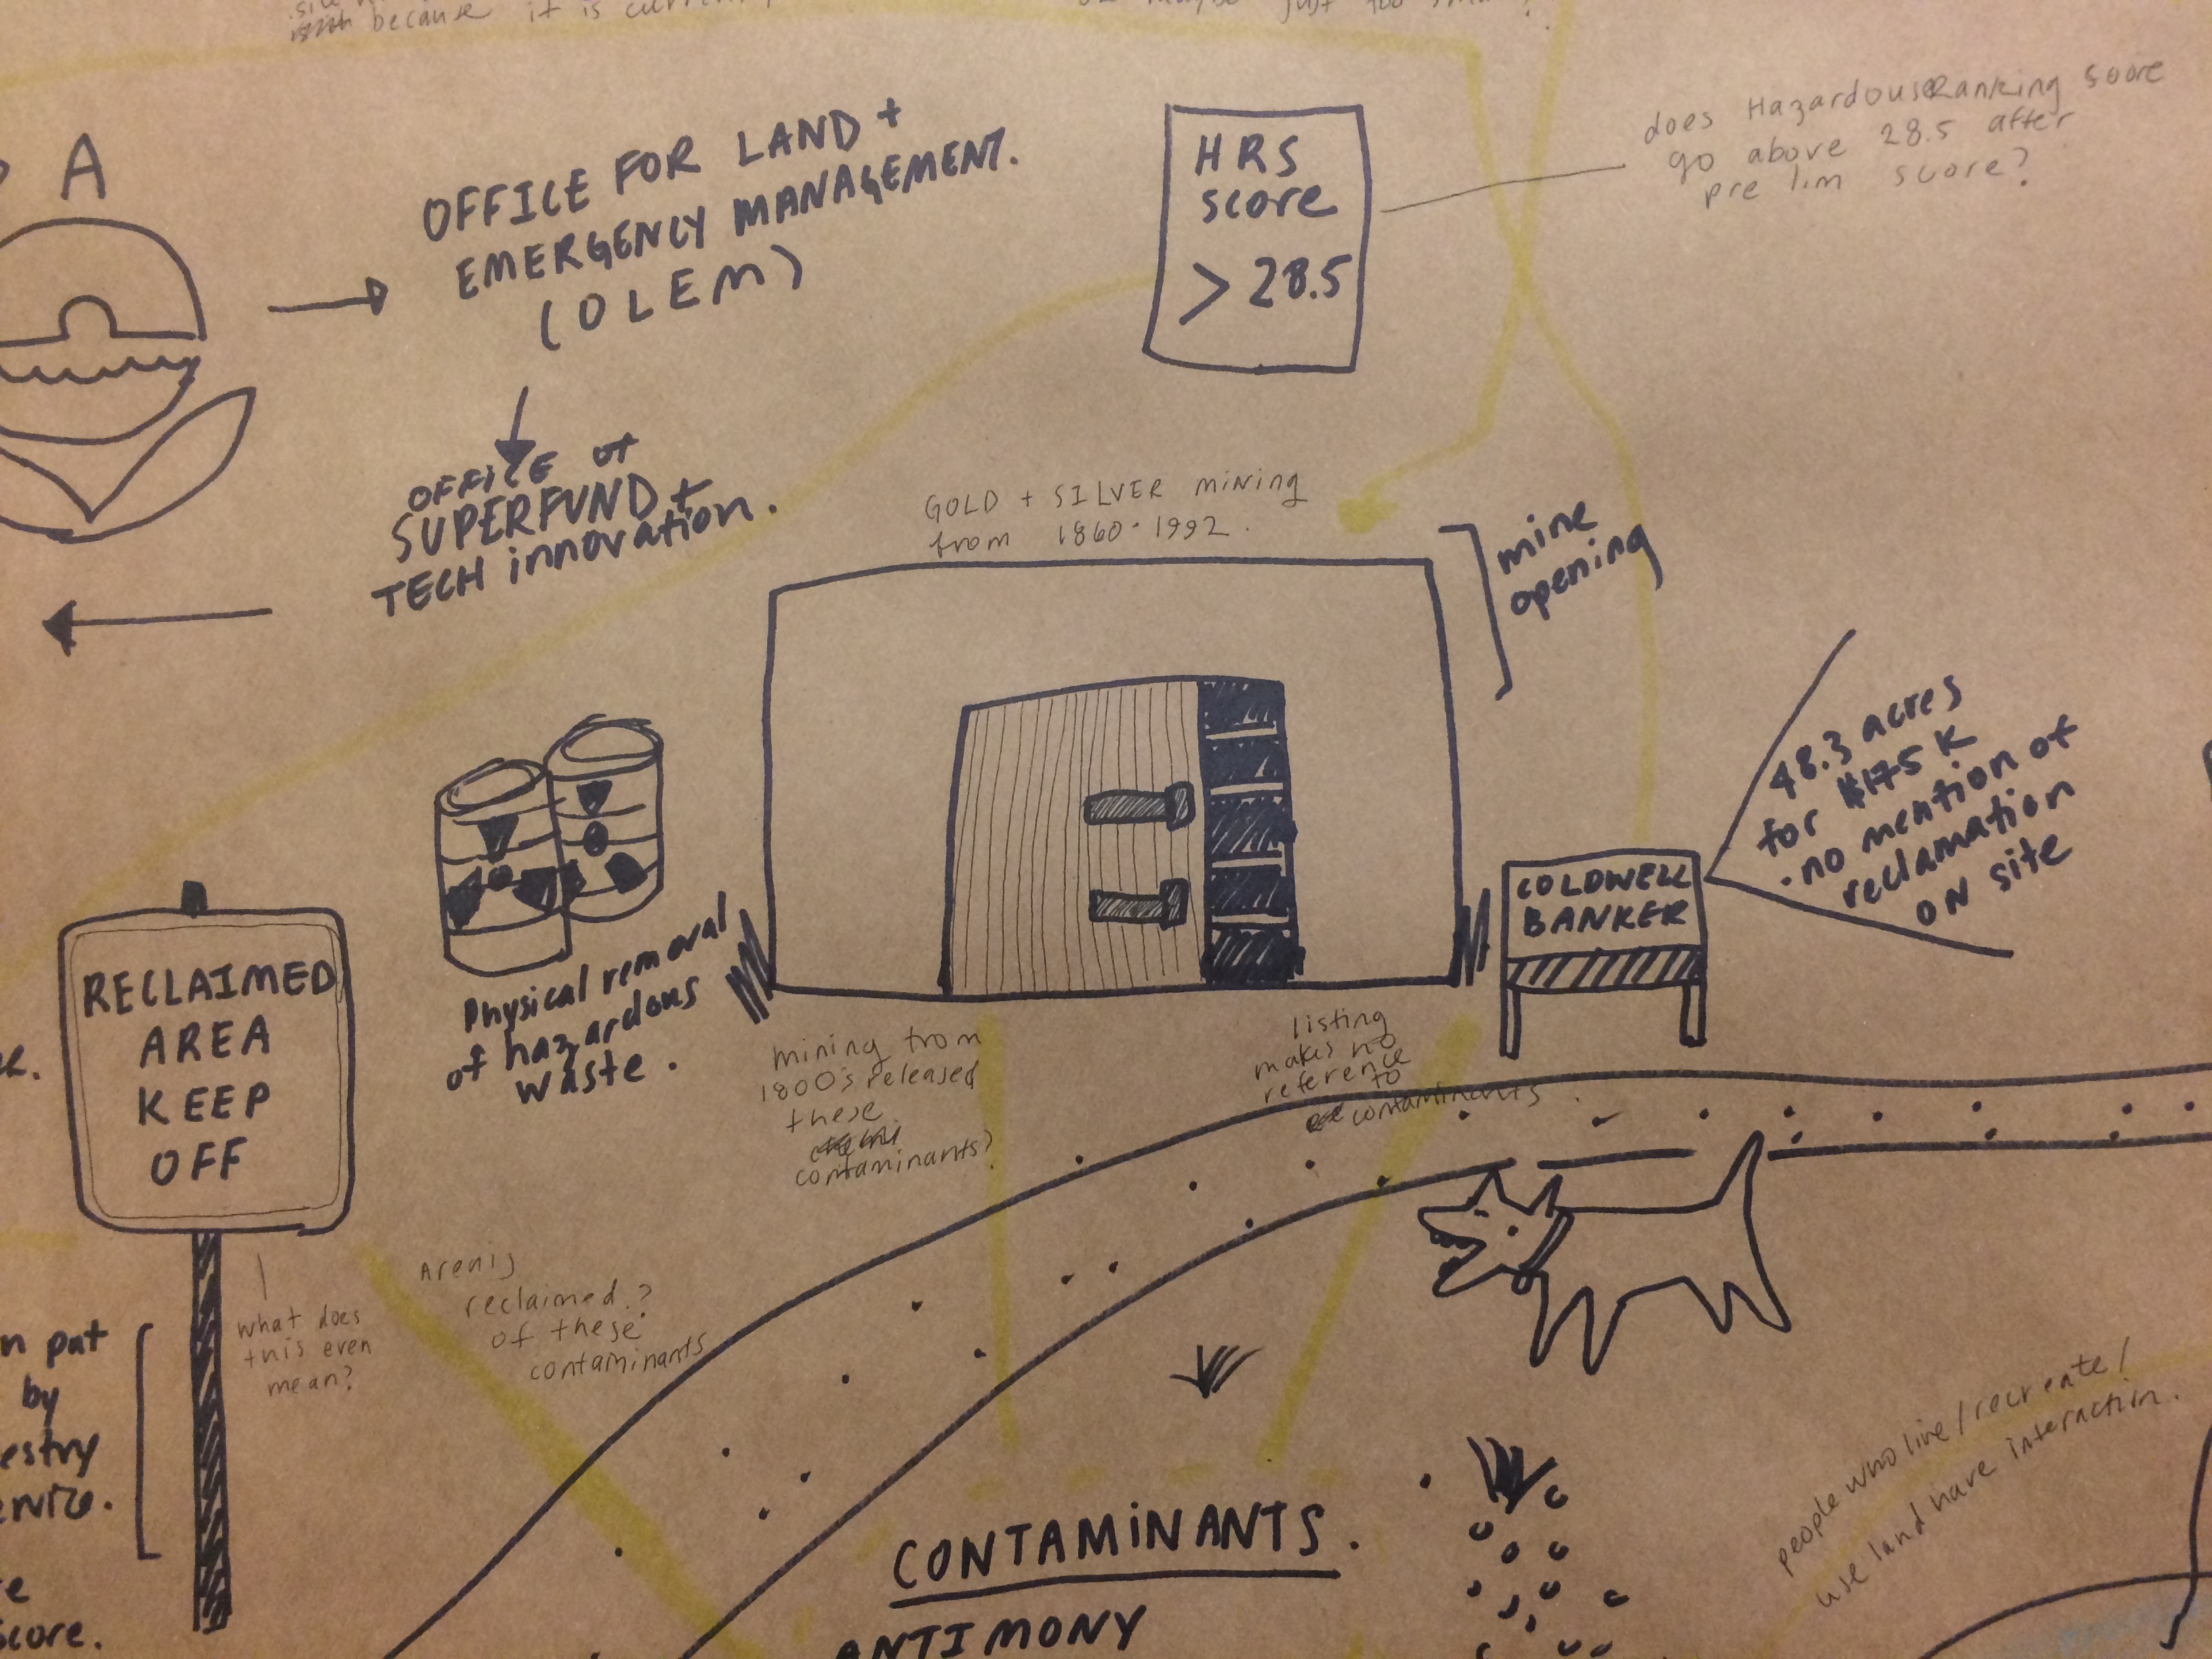 because it is
just too
A
OFFICE FOR LAND +
EMERGENCY MANAGEMENT.
(OLEM)
HRS
score
> 28.5
does Hazardous Ranking Score
go above 28.5 after
prelim score?
OFFICE of
SUPERFUND +
TECH innovation.
GOLD + SILVER mining
from 1860-1992.
mine
opening
48.3 acres
for $175K
. no mention of
reclamation
on site
COLDWELL
BANKER
RECLAIMED
AREA
KEEP
OFF
Physical removal
of hazardous
waste.
mining from
1800's released
these
contaminants?
listing
makes no
reference
to
contaminants.
what does
this even
mean?
reclaimed?
of these
contaminants
n pat
by
estry
score.
people who live/recreate/
use land have interaction.
CONTAMINANTS.
ANTIMONY